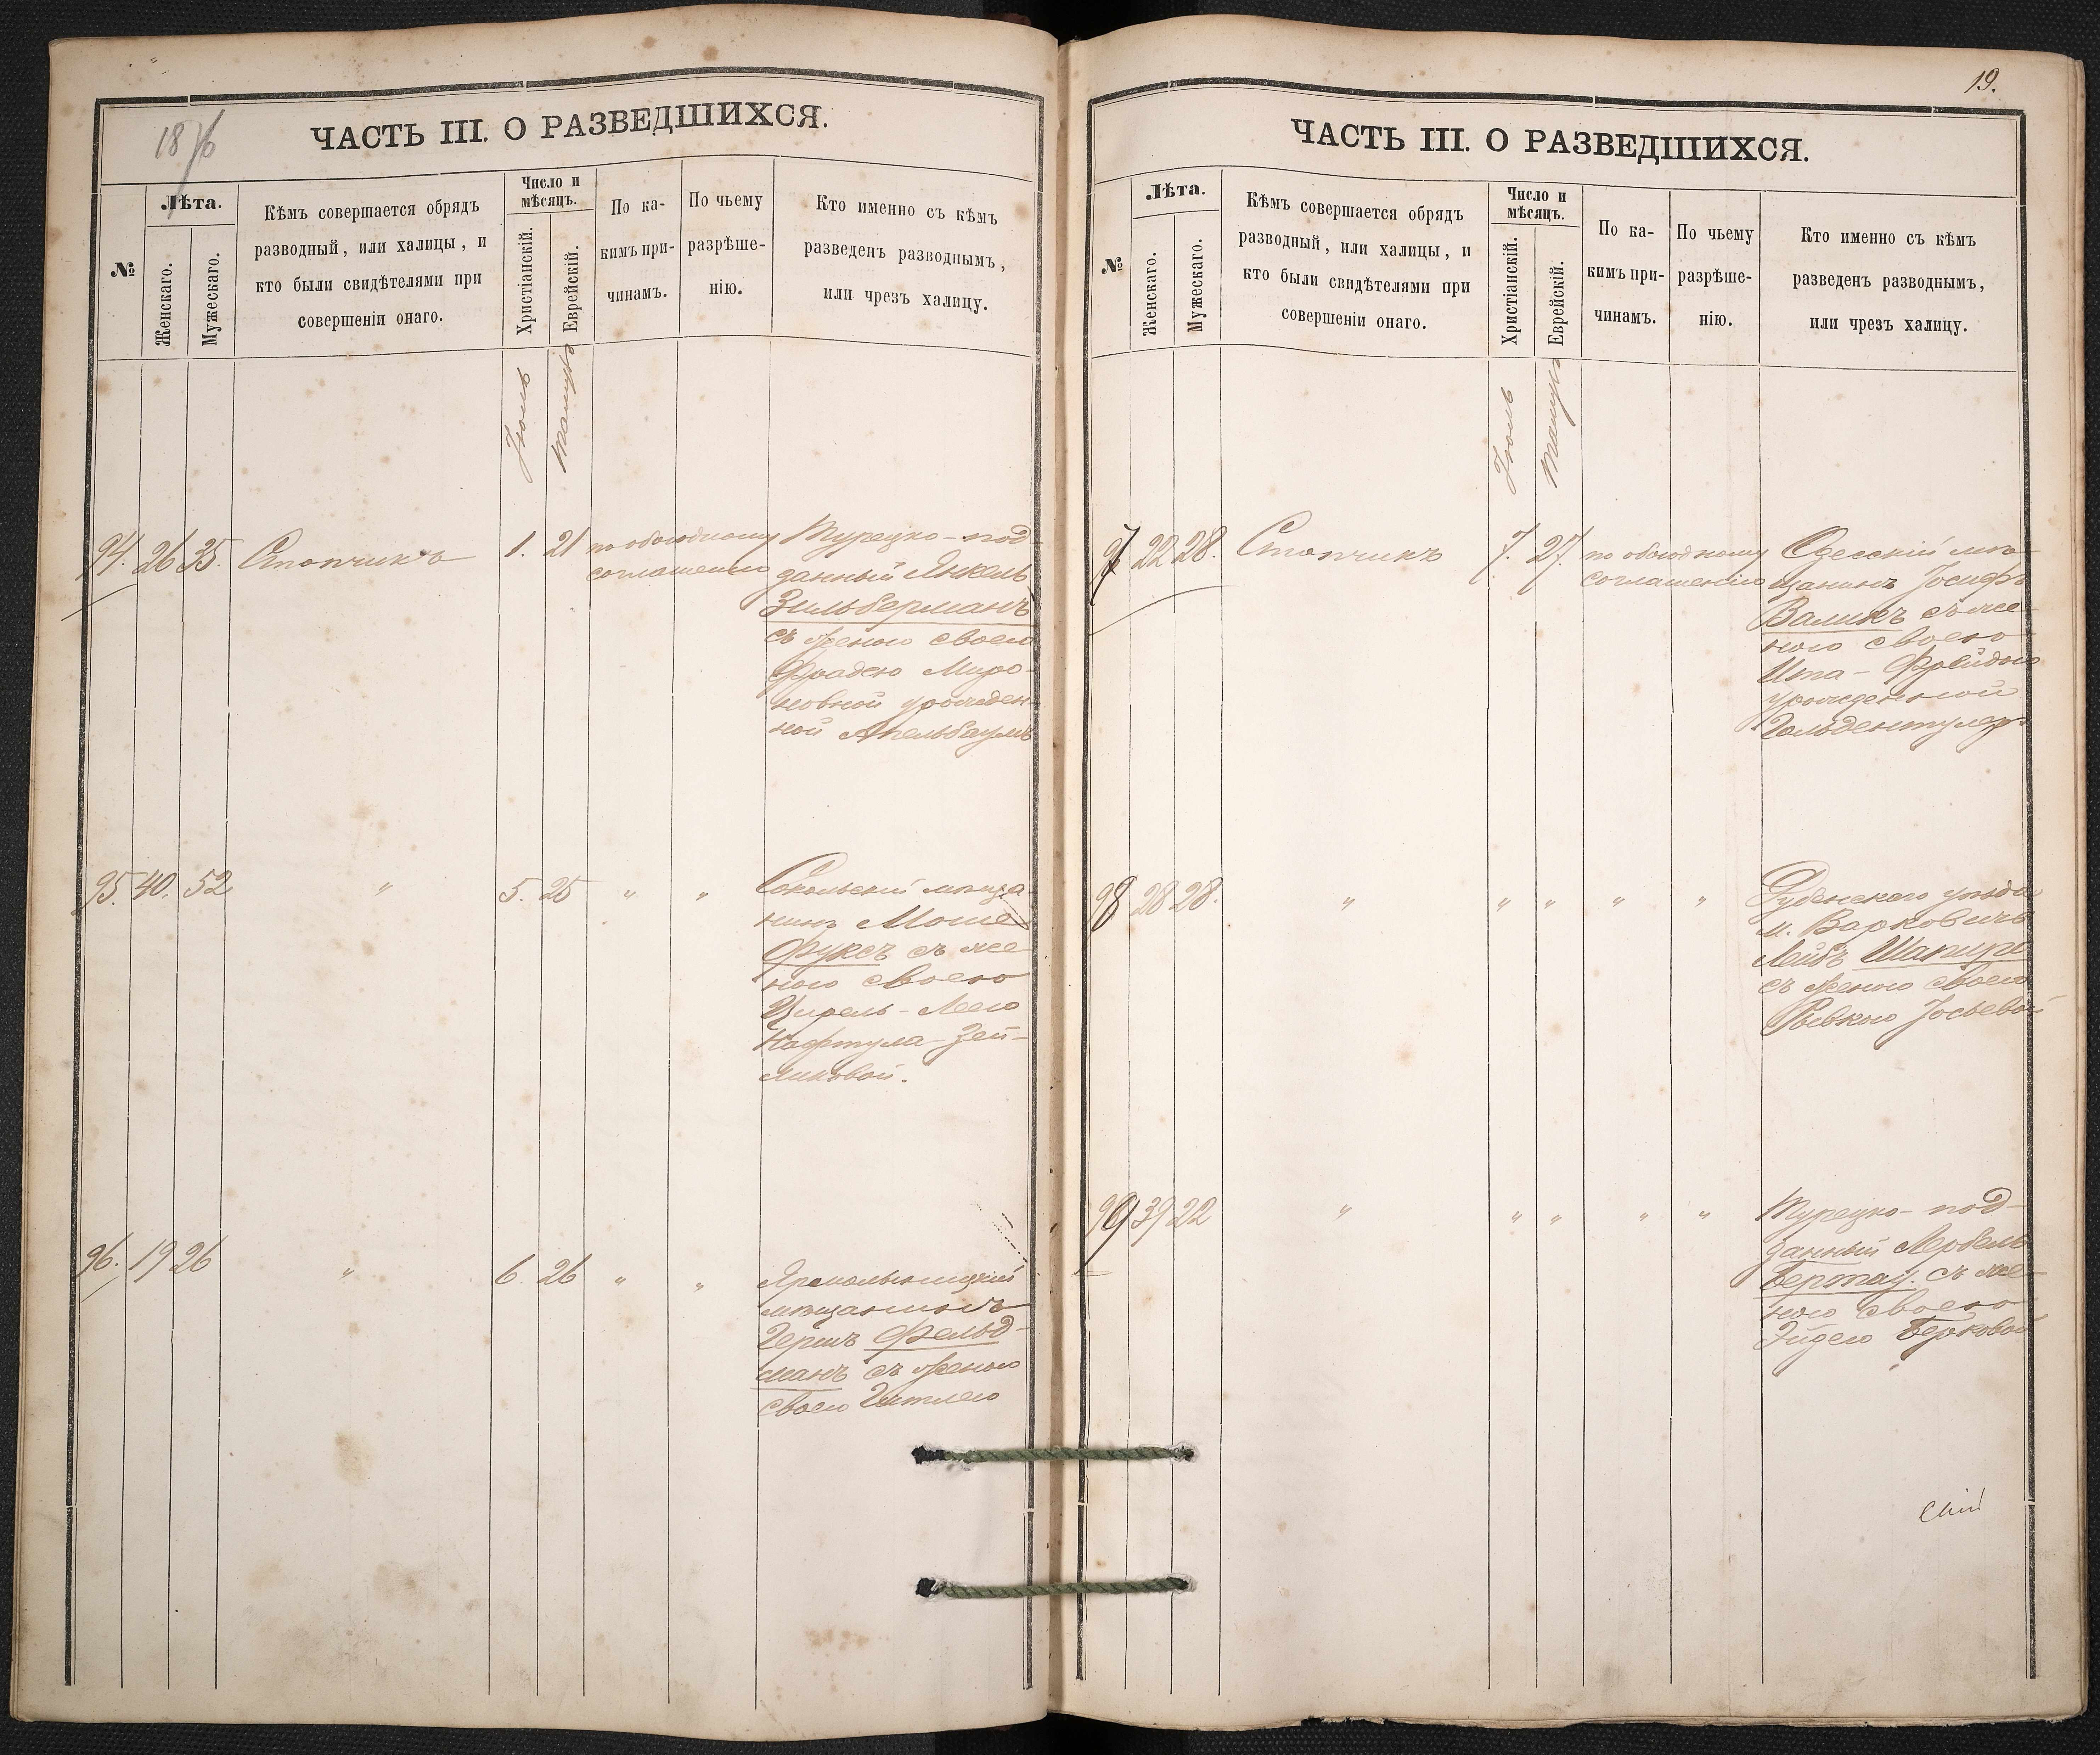 1876
ЧАСТЬ III. О РАЗВЕДШИХСЯ.
№
Лѣта.
Женскаго.
Мужескаго.
Кѣмъ совершается обрядъ
разводный, или халицы, и
кто были свидѣтелями при
совершеніи онаго.
Число и
мѣсяцъ.
Христіанскій.
Еврейскій.
По ка-
кимъ при-
чинамъ.
По чьему
разрѣше-
нію.
Кто именно съ кѣмъ
разведенъ разводнымъ,
или чрезъ халицу.
Іюль
Тамузъ
94. 26 35. Стопчикъ 1. 21 по обоюдному
соглашенію
Турецко-под-
данный Янкель
Зильберманъ
съ женою своею
Фрадею Миро-
новной урожден-
ной Апельбаумъ
95. 40. 52 " 5. 25 " "
Сокольскій мѣща-
нинъ Моше
Фуксъ съ же-
ною своею
Цирель-Леею
Нафтула-Зей-
ликовой.
96. 19 26 " 6. 26 " "
мѣщанинъ
Гершъ Фельд-
манъ съ женою
своею Гитлею
19.
ЧАСТЬ III. О РАЗВЕДШИХСЯ.
№
Лѣта.
Женскаго.
Мужескаго.
Кѣмъ совершается обрядъ
разводный, или халицы, и
кто были свидѣтелями при
совершеніи онаго.
Число и
мѣсяцъ.
Христіанскій.
Еврейскій.
По ка-
кимъ при-
чинамъ.
По чьему
разрѣше-
нію.
Кто именно съ кѣмъ
разведенъ разводнымъ,
или чрезъ халицу.
Іюль
Тамузъ
97 22 28. Стопчикъ 7. 27. по обоюдному
соглашенію
Одесскій мѣ-
щанинъ Іосифъ
Валикъ съ же-
ною своею
Ита-Фрейдою
урожденной
98 28 28. " " " " "
Дубенскаго уѣзда
м. Варковичъ
Лейбъ Шапиро
съ женою своею
Рывкою Іосьевой
99 39 22 " " " " "
Турецко-под-
данный
съ же-
ною своею
Берковой